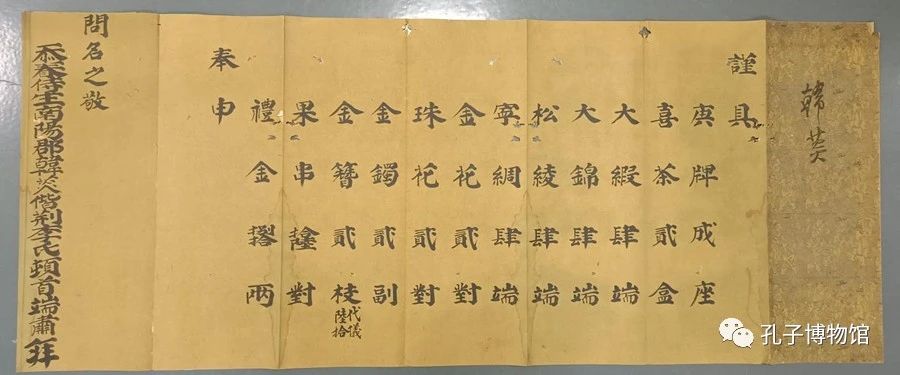 韓菼
謹具
庚牌成座
喜茶貳盒
大緞肆端
大錦肆端
松綾肆端
寧綢肆端
金花貳對
珠花貳對
金鐲貳副
金簪貳枝
代儀陸拾
果串對
禮金兩
奉申
問名之敬
忝眷侍生南陽郡韓菼偕荊李氏頓首端肅拜
孔子博物馆